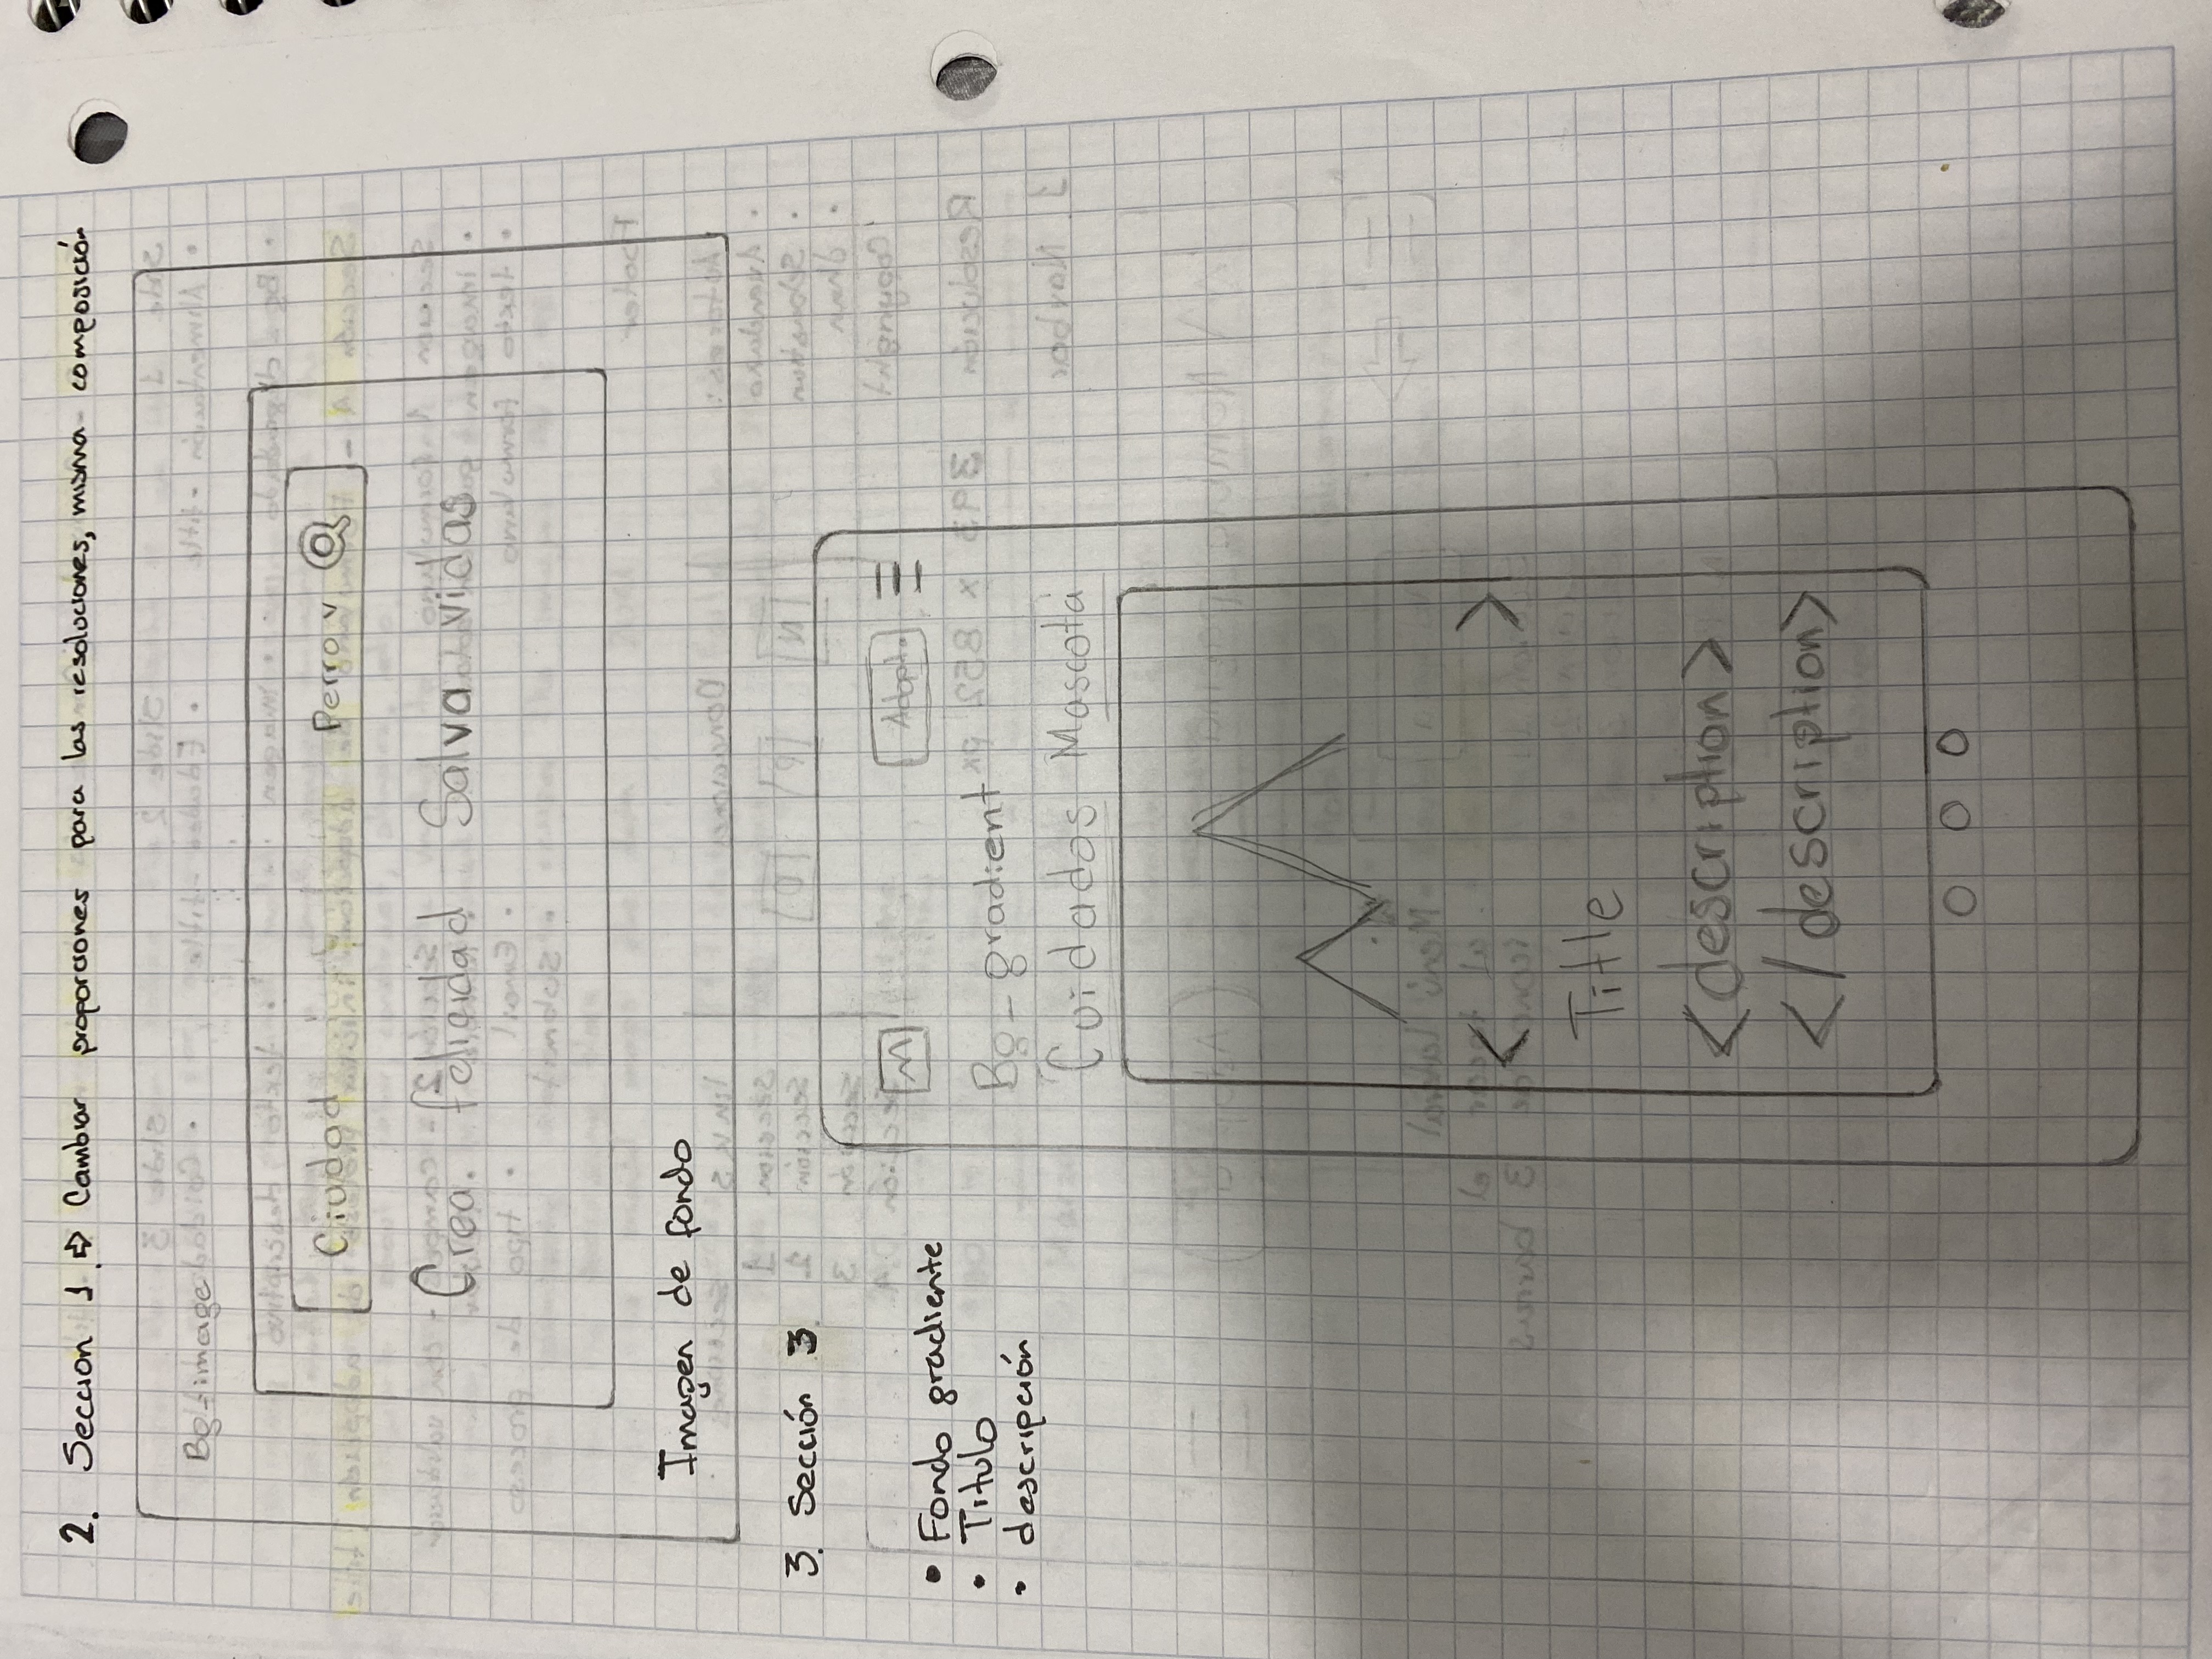 2. Seccion 1. ⇨ Cambiar proporciones para las resoluciones, misma composición
Bg-image
Ciudad Perro v
Crea felicidad Salva vidas
Imagen de fondo
3. Sección 3
Adopt.
• Fondo gradiente
• Titulo
• descripción
Bg-gradient
Cuidados Mascota
< >
Title
<description>
</description>